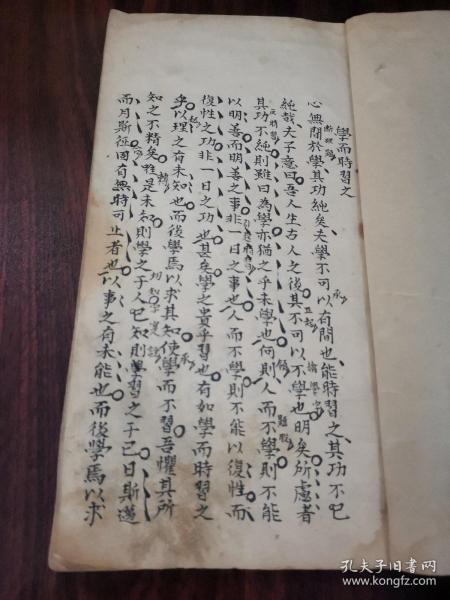 學而時習之
心無間於學其功純矣夫學不可以有間也能時習之其功不已
純哉夫子意曰吾人生古人之後其不可以不學也明矣所慮者
其功不純則雖曰為學亦猶之乎未學也何則人而不學則不能
以明善而明善之事非一日之事也人而不學則不能以復性而
復性之功非一日之功也甚矣學之貴乎習也有如學而時習之
乎以理之有未知也而後學焉以求其知使學而不習吾懼其所
知之不精矣惟是未知則學之于人已知則習之于己日斯邁
而月斯征固有無時可止者也以事之有未能也而後學焉以求
孔夫子旧书网
www.kongfz.com